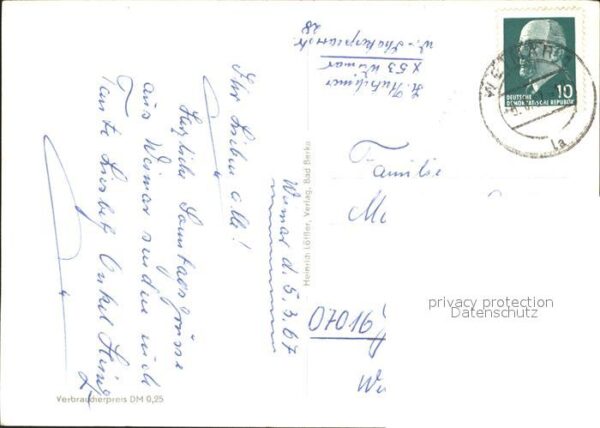 Weimar d. 5.3.67
Ihr Lieben alle!
Herzliche Sonntagsgrüsse
aus Weimar senden euch
Tante Liesbet Onkel Heinz
Verbraucherpreis DM 0,25
Heinrich Löffler, Verlag, Bad Berka
X 53 Weimar
W.-Shakespearestr.
28
DEUTSCHE
DEMOKRATISCHE REPUBLIK
10
1a
Familie
Me
07016
We
privacy protection
Datenschutz